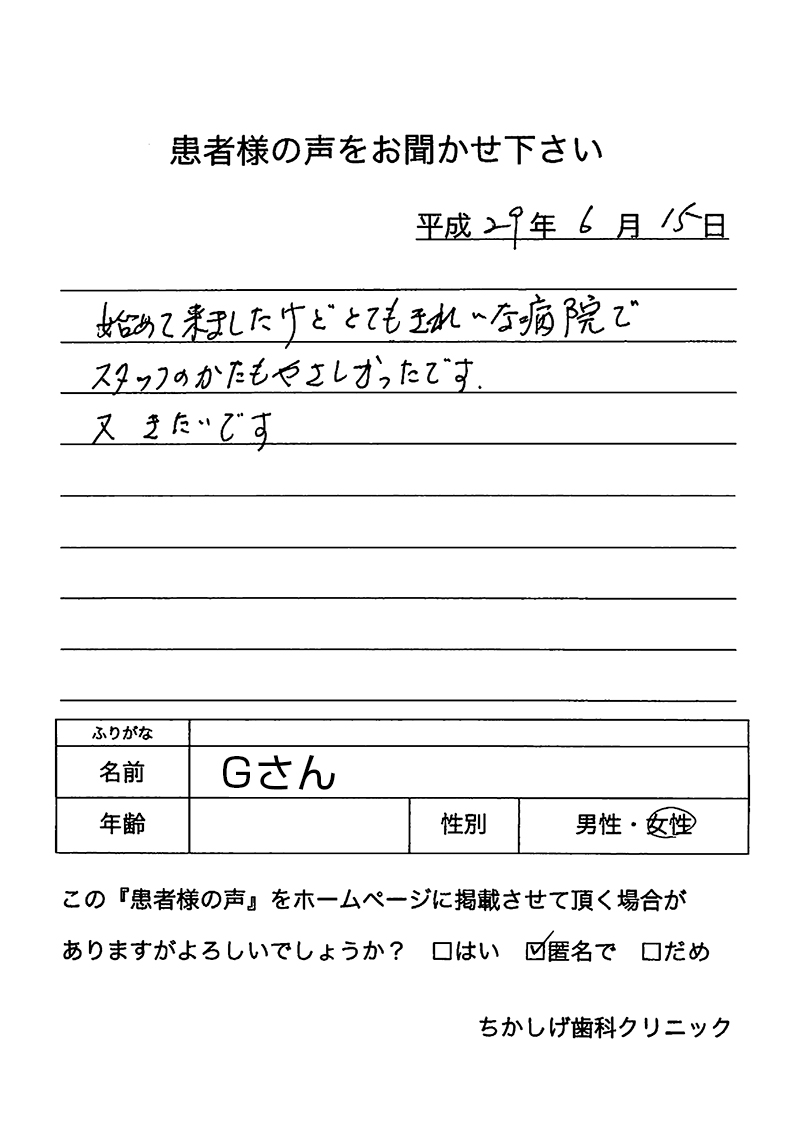 患者様の声をお聞かせ下さい
平成 29 年 6 月 15 日
始めて来ましたけどとてもきれいな病院で
スタッフのかたもやさしかったです.
又 きたいです
ふりがな
名前 Gさん
年齢 性別 男性・女性
この『患者様の声』をホームページに掲載させて頂く場合が
ありますがよろしいでしょうか？ □はい ☑匿名で □だめ
ちかしげ歯科クリニック